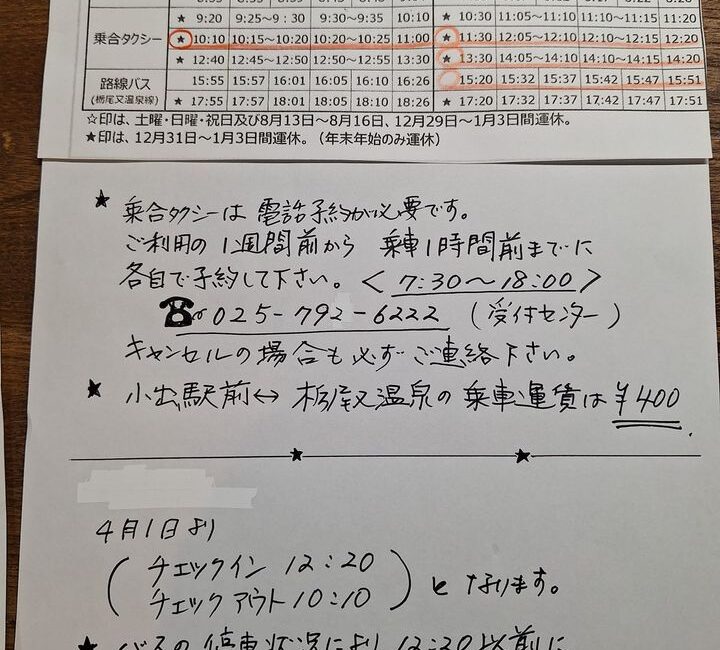 乗合タクシー
★ 9:20 9:25～9：30 9:30～9:35 10:10 ★ 10:30 11:05～11:10 11:10～11:15 11:20
★ 10:10 10:15～10:20 10:20～10:25 11:00 ★ 11:30 12:05～12:10 12:10～12:15 12:20
★ 12:40 12:45～12:50 12:50～12:55 13:30 ★ 13:30 14:05～14:10 14:10～14:15 14:20
路線バス
(栃尾又温泉線)
15:55 15:57 16:01 16:05 16:10 16:26 15:20 15:32 15:37 15:42 15:47 15:51
★ 17:55 17:57 18:01 18:05 18:10 18:26 ★ 17:20 17:32 17:37 17:42 17:47 17:51
☆印は、土曜・日曜・祝日及び8月13日～8月16日、12月29日～1月3日間運休。
★印は、12月31日～1月3日間運休。（年末年始のみ運休）
★ 乗合タクシーは 電話予約が必要です。
ご利用の 1週間前から 乗車1時間前までに
各自で予約して下さい。〈 7:30～18:00 〉
☎ 025-792-6222 (受付センター)
キャンセルの場合も必ずご連絡下さい。
★ 小出駅前↔栃尾又温泉の乗車運賃は ¥400
4月1日より
( チェックイン 12:20
チェックアウト 10:10 ) となります。
★ バスの停車状況により 12:20以前に